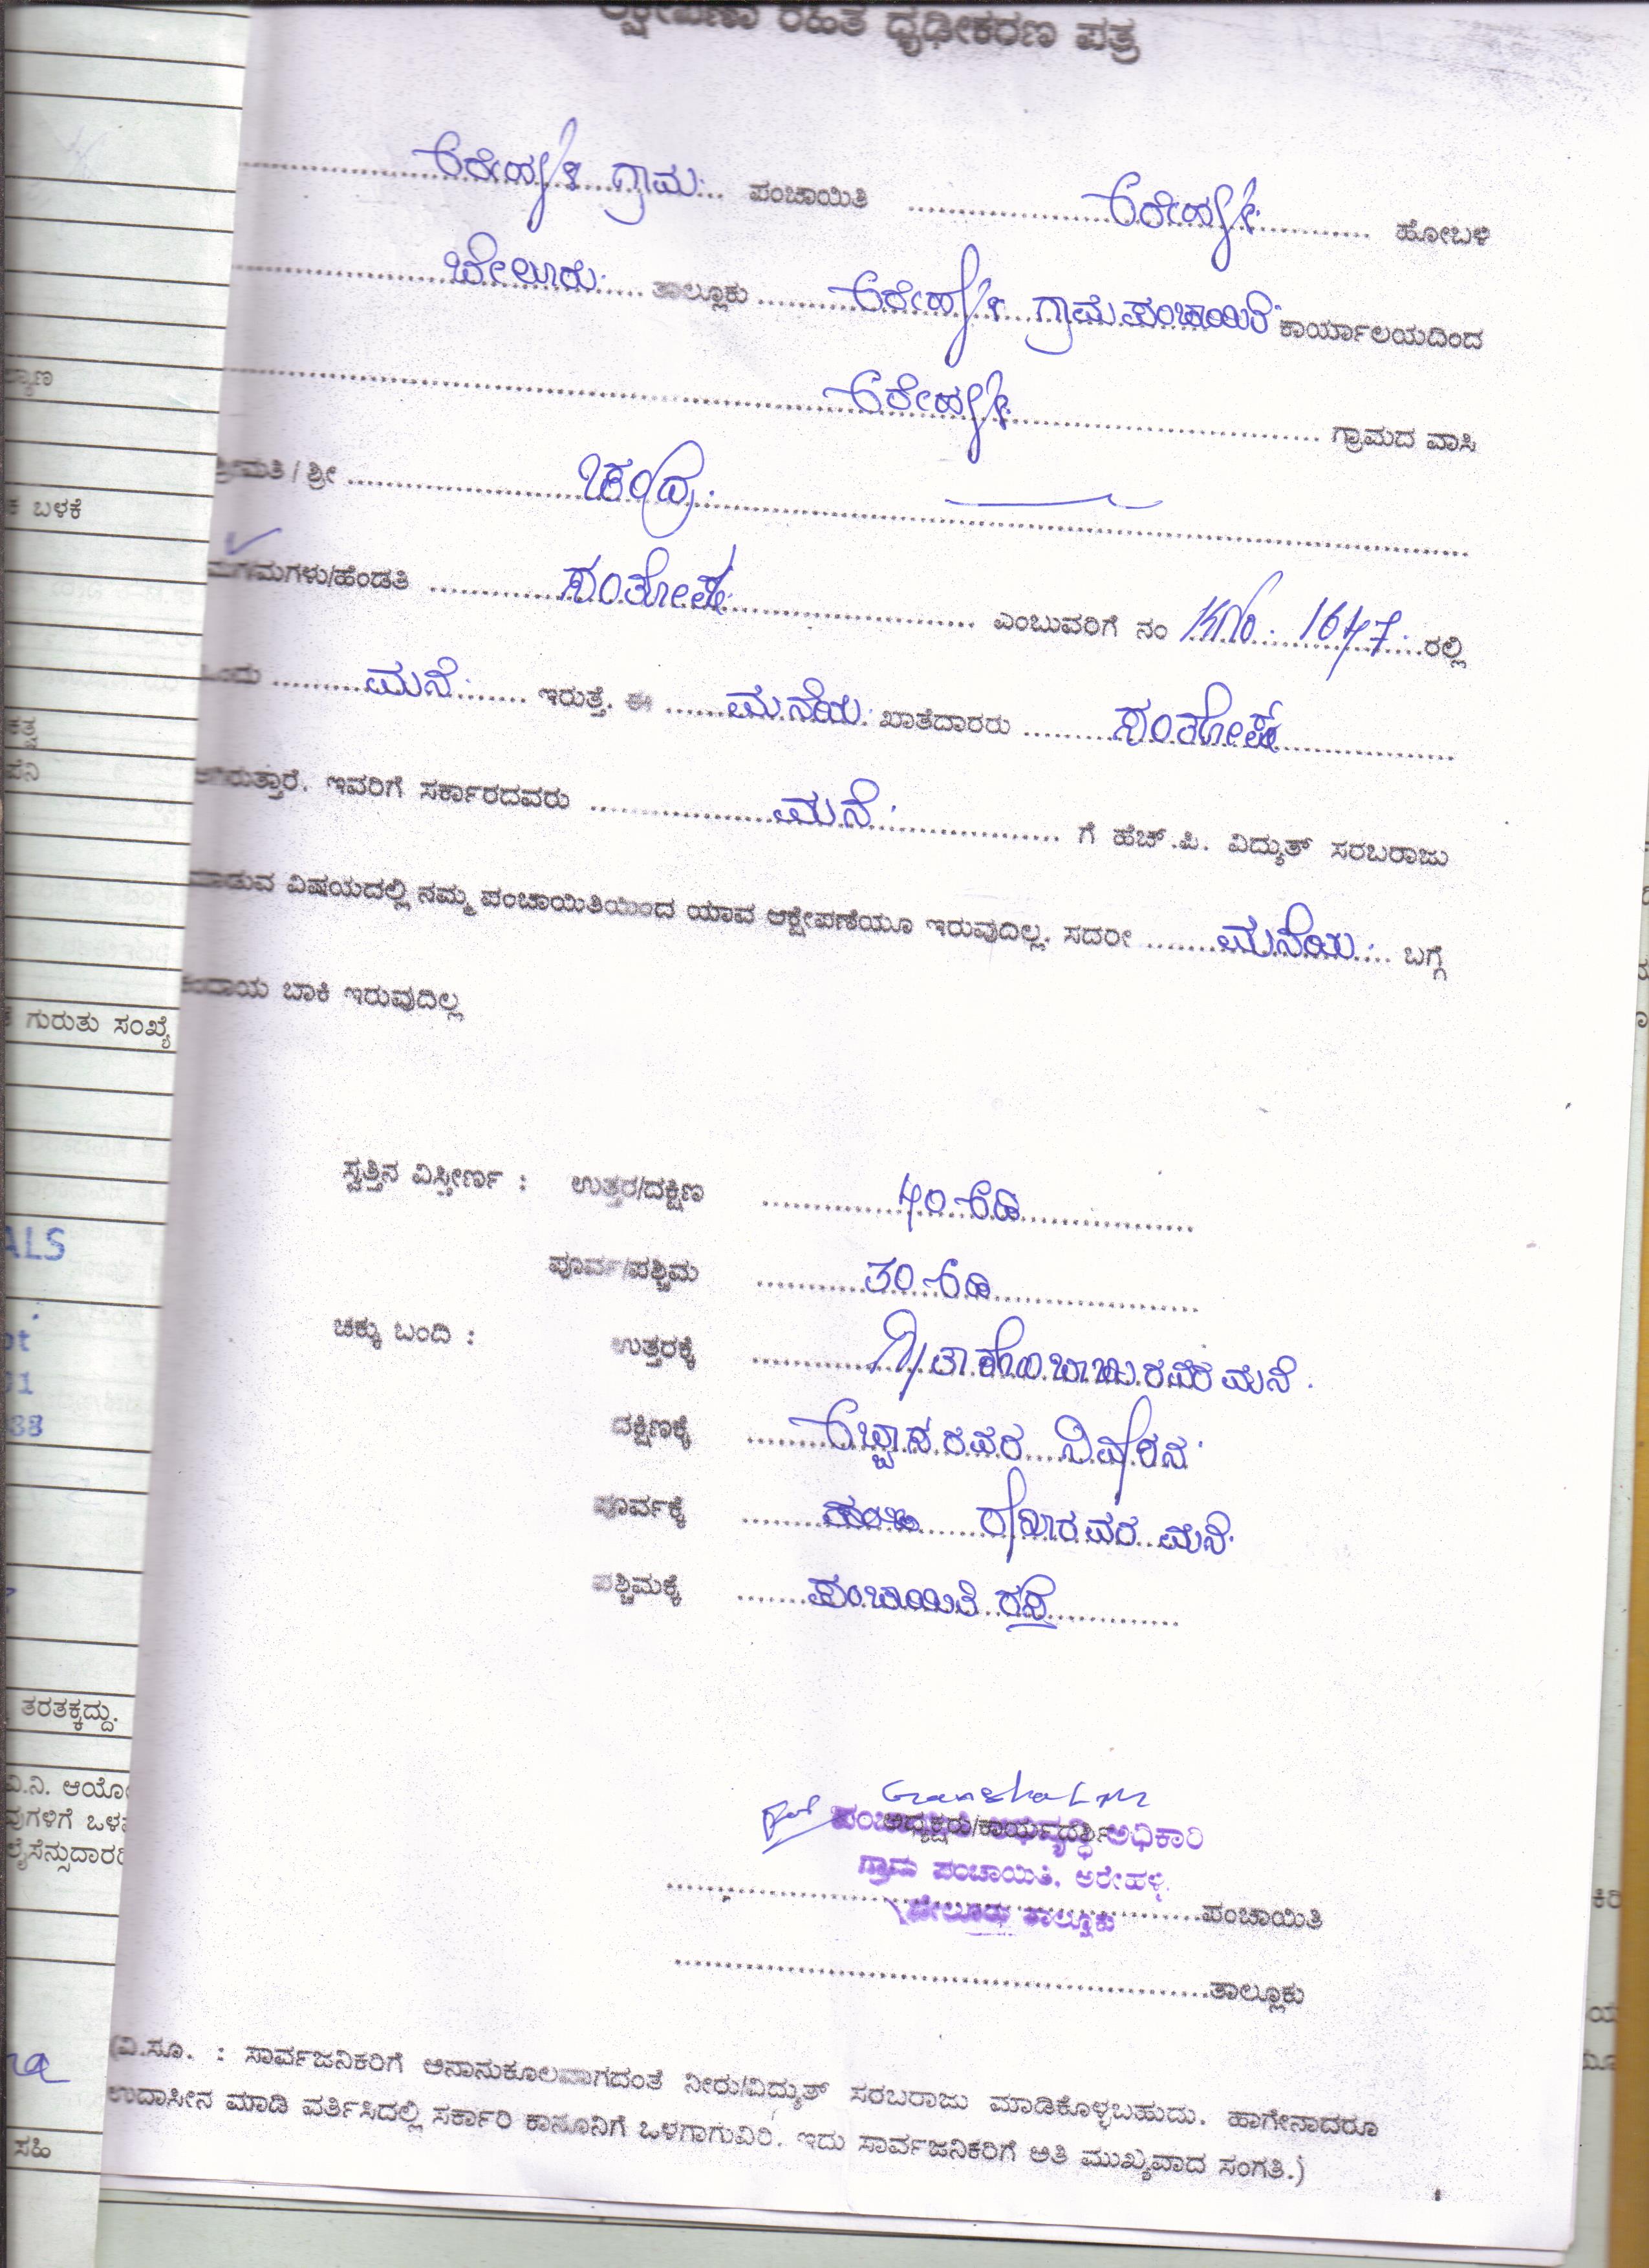 ರಹಿತ ಧೃಢೀಕರಣ ಪತ್ರ
ಅರೇಹಳ್ಳಿ ಗ್ರಾಮ ಪಂಚಾಯಿತಿ ಅರೇಹಳ್ಳಿ ಹೋಬಳಿ
ಬೇಲೂರು ತಾಲ್ಲೂಕು ಅರೇಹಳ್ಳಿ ಗ್ರಾಮ ಪಂಚಾಯಿತಿ ಕಾರ್ಯಾಲಯದಿಂದ
ಅರೇಹಳ್ಳಿ ಗ್ರಾಮದ ವಾಸಿ
ಶ್ರೀಮತಿ / ಶ್ರೀ ಚಂದ್ರು
ಮಗ/ಮಗಳು/ಹೆಂಡತಿ ಸಂತೋಷ್ ಎಂಬುವರಿಗೆ ನಂ 1647 ರಲ್ಲಿ
ಒಂದು ಮನೆ ಇರುತ್ತೆ. ಈ ಮನೆಯ ಖಾತೆದಾರರು ಸಂತೋಷ್
ಆಗಿರುತ್ತಾರೆ. ಇವರಿಗೆ ಸರ್ಕಾರದವರು ಮನೆ ಗೆ ಹೆಚ್.ಪಿ. ವಿದ್ಯುತ್ ಸರಬರಾಜು
ಮಾಡುವ ವಿಷಯದಲ್ಲಿ ನಮ್ಮ ಪಂಚಾಯಿತಿಯಿಂದ ಯಾವ ಆಕ್ಷೇಪಣೆಯೂ ಇರುವುದಿಲ್ಲ. ಸದರೀ ಮನೆಯ ಬಗ್ಗೆ
ಕಂದಾಯ ಬಾಕಿ ಇರುವುದಿಲ್ಲ
ಸ್ವತ್ತಿನ ವಿಸ್ತೀರ್ಣ : ಉತ್ತರ/ದಕ್ಷಿಣ 40 ಅಡಿ
ಪೂರ್ವ/ಪಶ್ಚಿಮ 30 ಅಡಿ
ಚಕ್ಕು ಬಂದಿ : ಉತ್ತರಕ್ಕೆ ರವರ ಮನೆ
ದಕ್ಷಿಣಕ್ಕೆ ರವರ ನಿವೇಶನ
ಪೂರ್ವಕ್ಕೆ ರವರ ಮನೆ
ಪಶ್ಚಿಮಕ್ಕೆ ಪಂಚಾಯಿತಿ ರಸ್ತೆ
ಅಧ್ಯಕ್ಷರು/ಕಾರ್ಯದರ್ಶಿ
ಪಂಚಾಯಿತಿ ಅಭಿವೃದ್ಧಿ ಅಧಿಕಾರಿ
ಗ್ರಾಮ ಪಂಚಾಯಿತಿ, ಅರೇಹಳ್ಳಿ
ಬೇಲೂರು ತಾಲ್ಲೂಕು
ಪಂಚಾಯಿತಿ
ತಾಲ್ಲೂಕು
(ವಿ.ಸೂ. : ಸಾರ್ವಜನಿಕರಿಗೆ ಅನಾನುಕೂಲವಾಗದಂತೆ ನೀರು/ವಿದ್ಯುತ್ ಸರಬರಾಜು ಮಾಡಿಕೊಳ್ಳಬಹುದು. ಹಾಗೇನಾದರೂ
ಉದಾಸೀನ ಮಾಡಿ ವರ್ತಿಸಿದಲ್ಲಿ ಸರ್ಕಾರಿ ಕಾನೂನಿಗೆ ಒಳಗಾಗುವಿರಿ. ಇದು ಸಾರ್ವಜನಿಕರಿಗೆ ಅತಿ ಮುಖ್ಯವಾದ ಸಂಗತಿ.)
ಬಳಕೆ
ಗುರುತು ಸಂಖ್ಯೆ
ತರತಕ್ಕದ್ದು.
ಸಹಿ